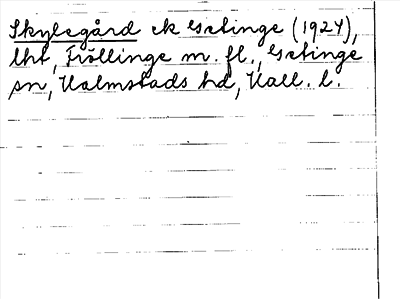 Skylsgård ek Getinge (1924),
lht, Fröllinge m. fl., Getinge
sn, Halmstads hd, Hall. l.